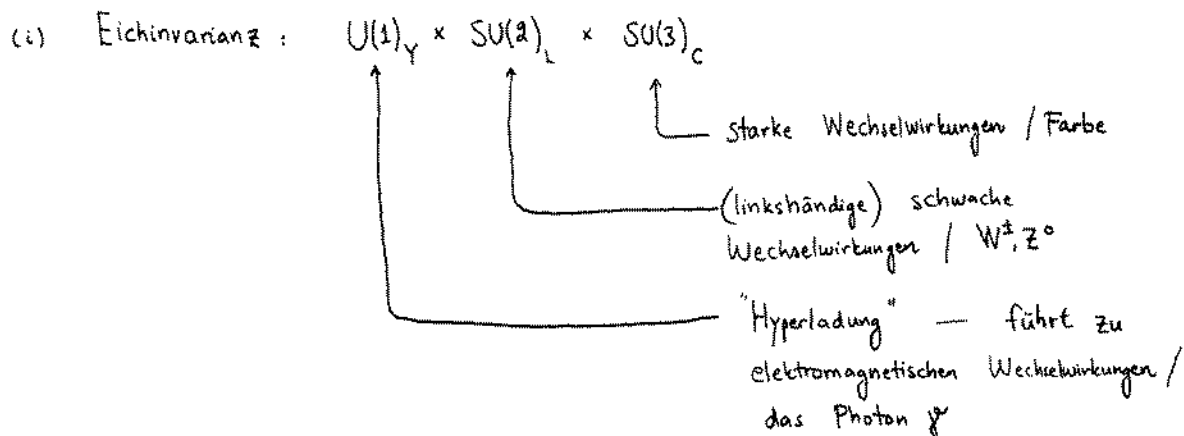 (i) Eichinvarianz : U(1)_Y × SU(2)_L × SU(3)_C
starke Wechselwirkungen / Farbe
(linkshändige) schwache
Wechselwirkungen / W^±, Z^0
"Hyperladung" — führt zu
elektromagnetischen Wechselwirkungen /
das Photon γ